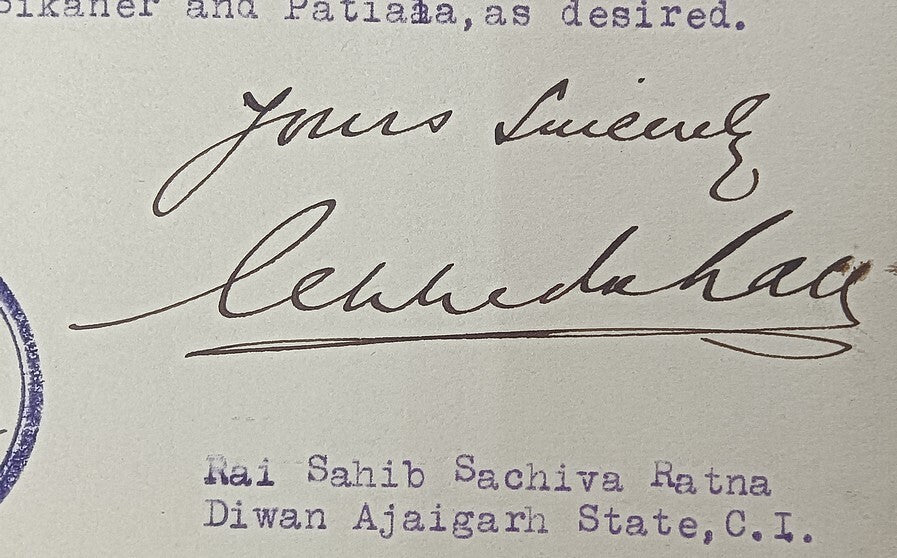 Bikaner and Patiala,as desired.
Yours Sincerely
Rai Sahib Sachiva Ratna
Diwan Ajaigarh State,C.I.